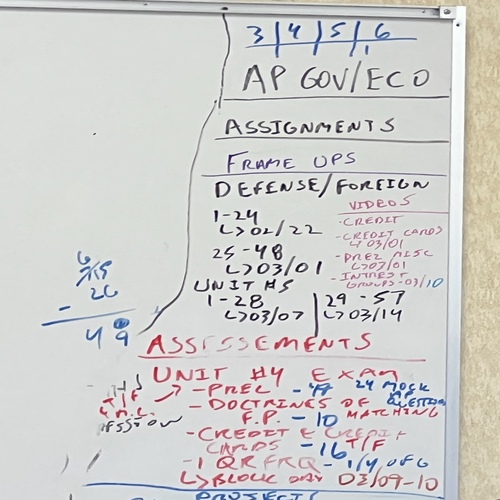 3 | 4 | 5 | 6
AP GOV/ECO
ASSIGNMENTS
FRAME UPS
DEFENSE/FOREIGN
1-24
↳02/22
25-48
↳03/01
VIDEOS
-CREDIT
-CREDIT CARDS
↳03/01
-PREZ MISC
↳03/01
-INTREST
GROUPS-03/10
UNIT #5
1-28
↳03/07
29-57
↳03/14
6
15
- 26
49
ASSESSEMENTS
UNIT #4 EXAM
-PREZ - 24 MOCK
AP QUESTIONS
-DOCTRINES OF
F.P. - 10 MATCHING
-CREDIT & CREDIT
CARDS - 16 T/F
-1 QRFRQ - 1/4 OF 6
↳BLOCK DAY 03/09-10
T/F
PROJECTS